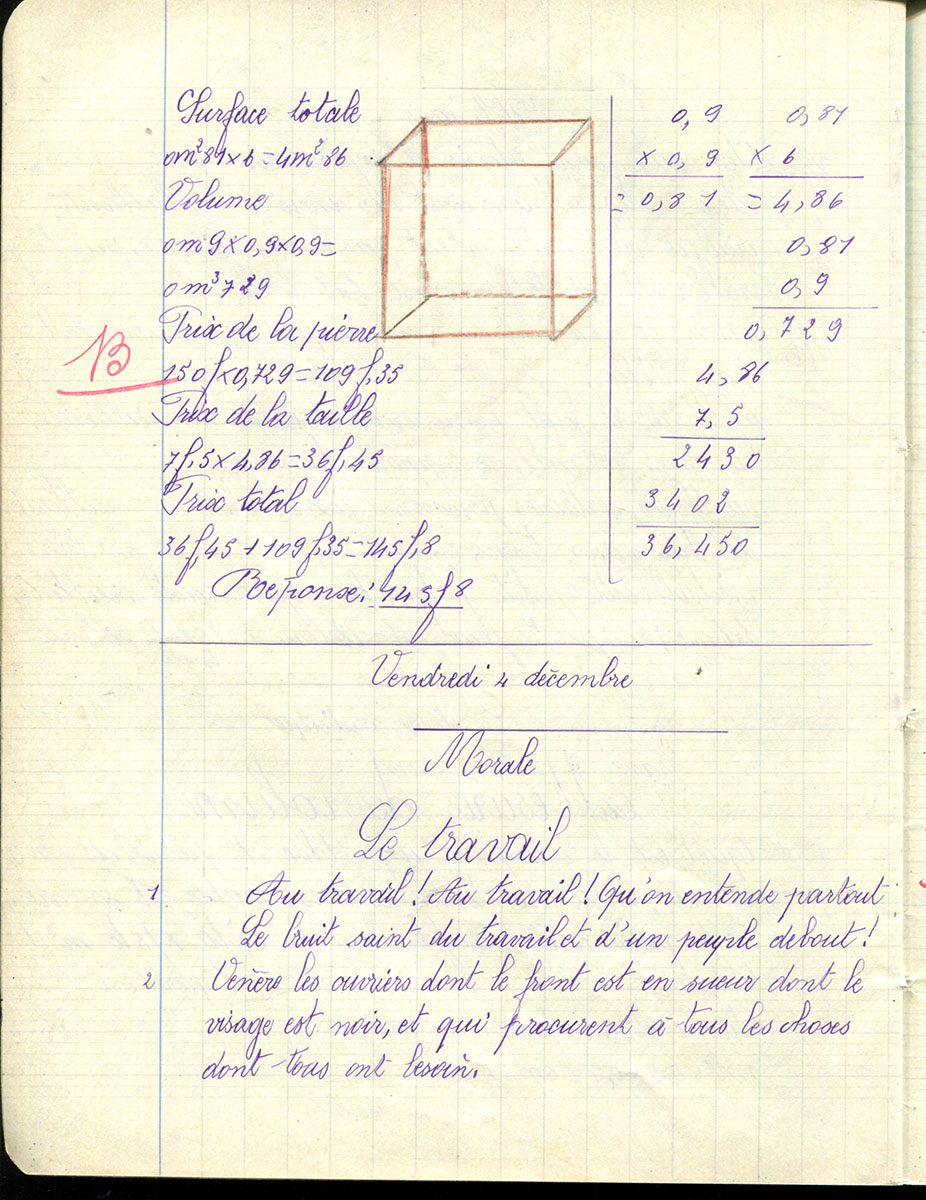 Surface totale
0m²81×6=4m²86
Volume
0m9×0,9×0,9=
0m³729
Prix de la pierre
150f×0,729=109f,35
Prix de la taille
7f,5×4,86=36f,45
Prix total
36f,45+109f,35=145f,8
Reponse: 145f8
B
0,9
×0,9
=0,81
0,81
×6
=4,86
0,81
0,9
0,729
4,86
7,5
2430
3402
36,450
Vendredi 4 décembre
Morale
Le travail
1 Au travail! Au travail! Qu'on entende partout
Le bruit saint du travail et d'un peuple debout!
2 Vénère les ouvriers dont le front est en sueur dont le
visage est noir, et qui procurent à tous les choses
dont tous ont besoin.